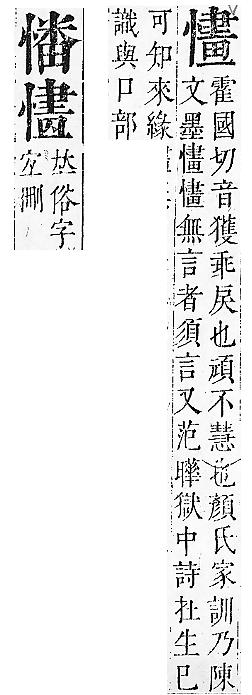 㦎
霍國切音獲乖戾也頑不慧也顏氏家訓乃陳
文墨㦎㦎無言者須言又范曄獄中詩扗生已
可知來緣
識與口部
𠀤俗字
宐刪